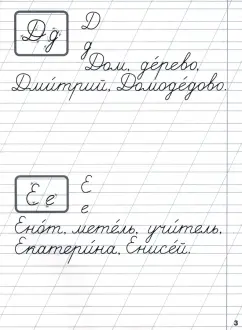 Дд Д
д
До́м, де́рево,
Дми́трий, Домоде́дово.
Ее Е
е
Ено́т, мете́ль, учи́тель,
Екатери́на, Енисе́й.
3